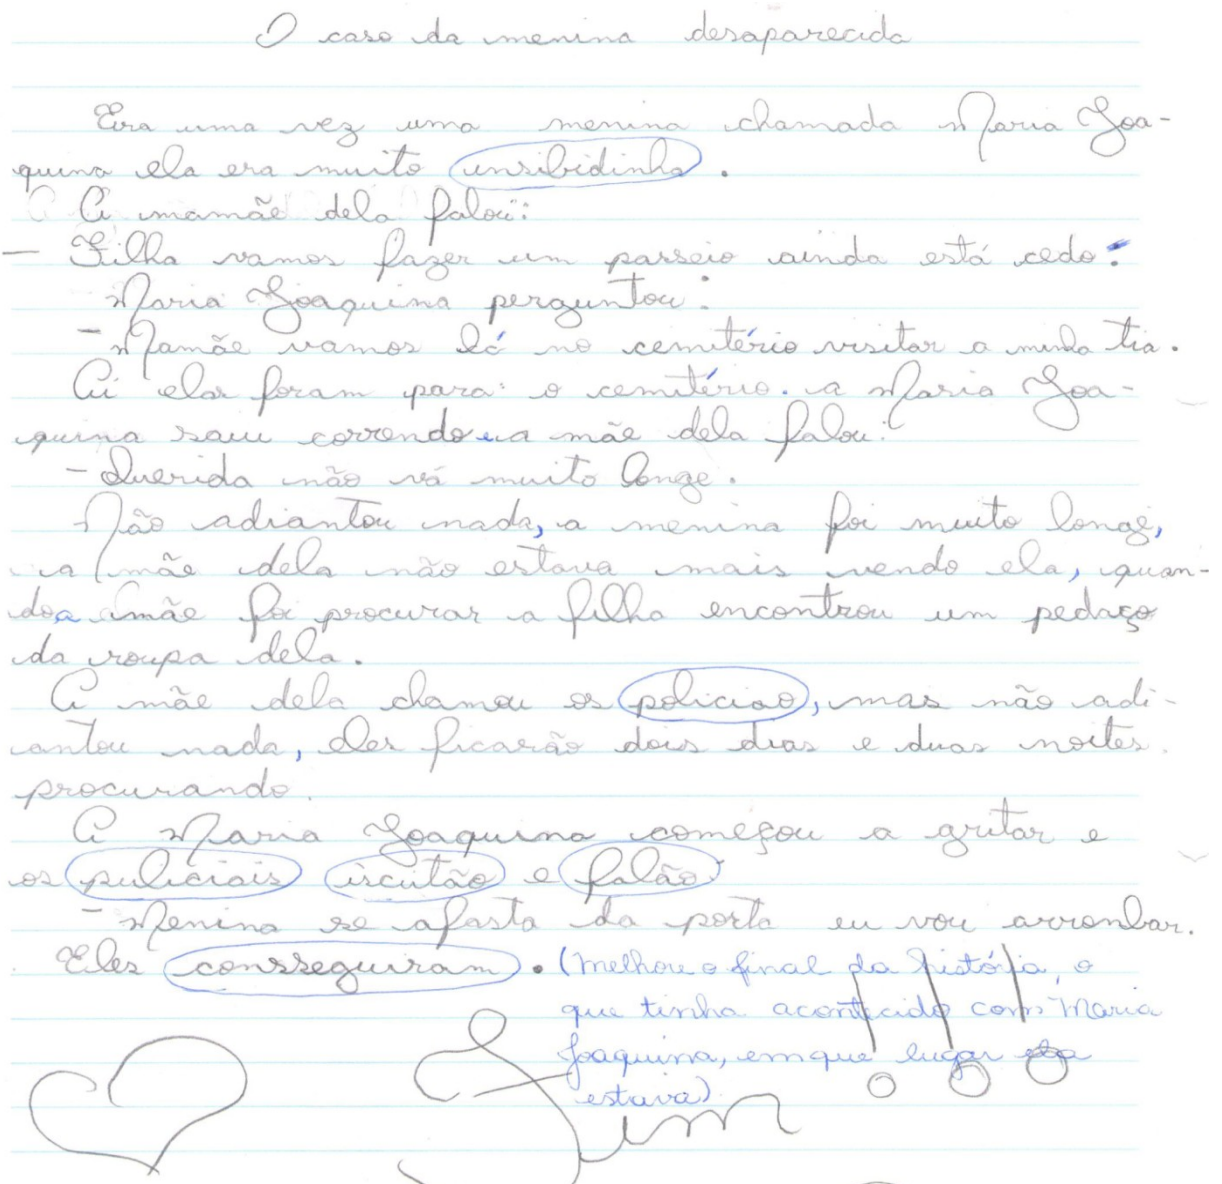 O caso da menina desaparecida
Era uma vez uma menina chamada Maria Joa-
quina ela era muito insibidinha.
A mamãe dela falou:
— Filha vamos fazer um passeio ainda está cedo.
Maria Joaquina perguntou:
- Mamãe vamos lá no cemitério visitar a minha tia.
Ai elas foram para o cemitério. a Maria Joa-
quina saiu correndo e a mãe dela falou:
- Querida não vá muito longe.
Não adiantou nada, a menina foi muito longe,
a mãe dela não estava mais vendo ela, quan-
do a mãe foi procurar a filha encontrou um pedaço
da roupa dela.
A mãe dela chamou os policiao, mas não adi-
antou nada, eles ficarão dois dias e duas noites
procurando.
A Maria Joaquina começou a gritar e
os puliciais iscutão e falão:
- Menina se afasta da porta eu vou arrombar.
Eles consseguiram. (Melhore o final da história, o
que tinha acontecido com Maria
Joaquina, em que lugar ela
estava)
Fim !!!